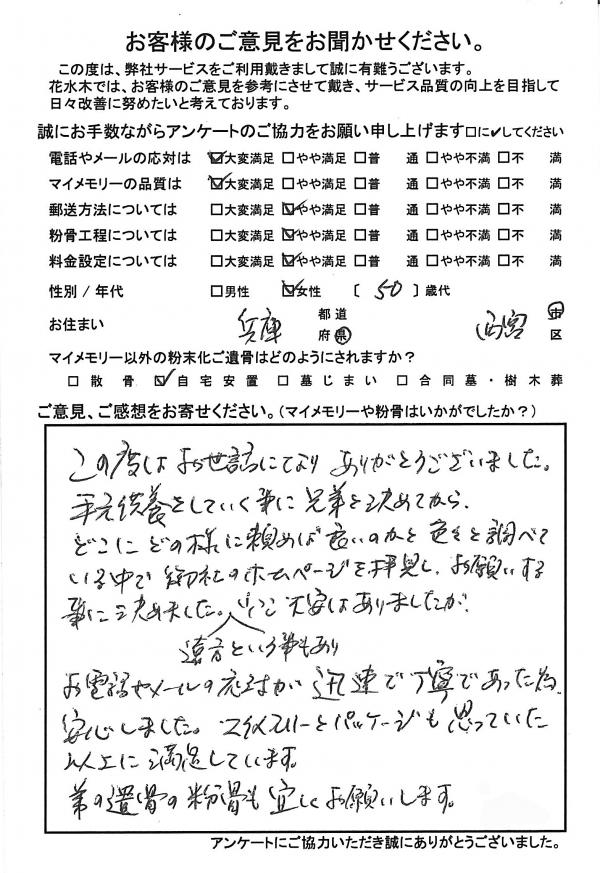 お客様のご意見をお聞かせください。
この度は、弊社サービスをご利用戴きまして誠に有難うございます。
花水木では、お客様のご意見を参考にさせて戴き、サービス品質の向上を目指して
日々改善に努めたいと考えております。
誠にお手数ながらアンケートのご協力をお願い申し上げます□に✔してください
電話やメールの応対は ☑大変満足 □やや満足 □普 通 □やや不満 □不 満
マイメモリーの品質は ☑大変満足 □やや満足 □普 通 □やや不満 □不 満
郵送方法については □大変満足 ☑やや満足 □普 通 □やや不満 □不 満
粉骨工程については □大変満足 ☑やや満足 □普 通 □やや不満 □不 満
料金設定については □大変満足 ☑やや満足 □普 通 □やや不満 □不 満
性別 / 年代 □男性 ☑女性 〔 50 〕歳代
お住まい 兵庫 都 道 府 県 西宮 市 区
マイメモリー以外の粉末化ご遺骨はどのようにされますか？
□ 散 骨 ☑ 自 宅 安 置 □ 墓 じ ま い □ 合 同 墓 ・ 樹 木 葬
ご意見、ご感想をお寄せください。(マイメモリーや粉骨はいかがでしたか？)
この度は お世話になり ありがとうございました。
手元供養をしていく事に 兄弟と決めてから、
どこに どの様に頼めば良いのかと 色々と調べて
いる中で 御社のホームページを拝見し、お願いする
事に決めました。 不安はありましたが、
遠方という事もあり
お電話やメールの応対が 迅速で丁寧であった為、
安心しました。 マイメモリーとパッケージも 思っていた
以上に満足しています。
弟の遺骨の粉骨も 宜しくお願いします。
アンケートにご協力いただき誠にありがとうございました。